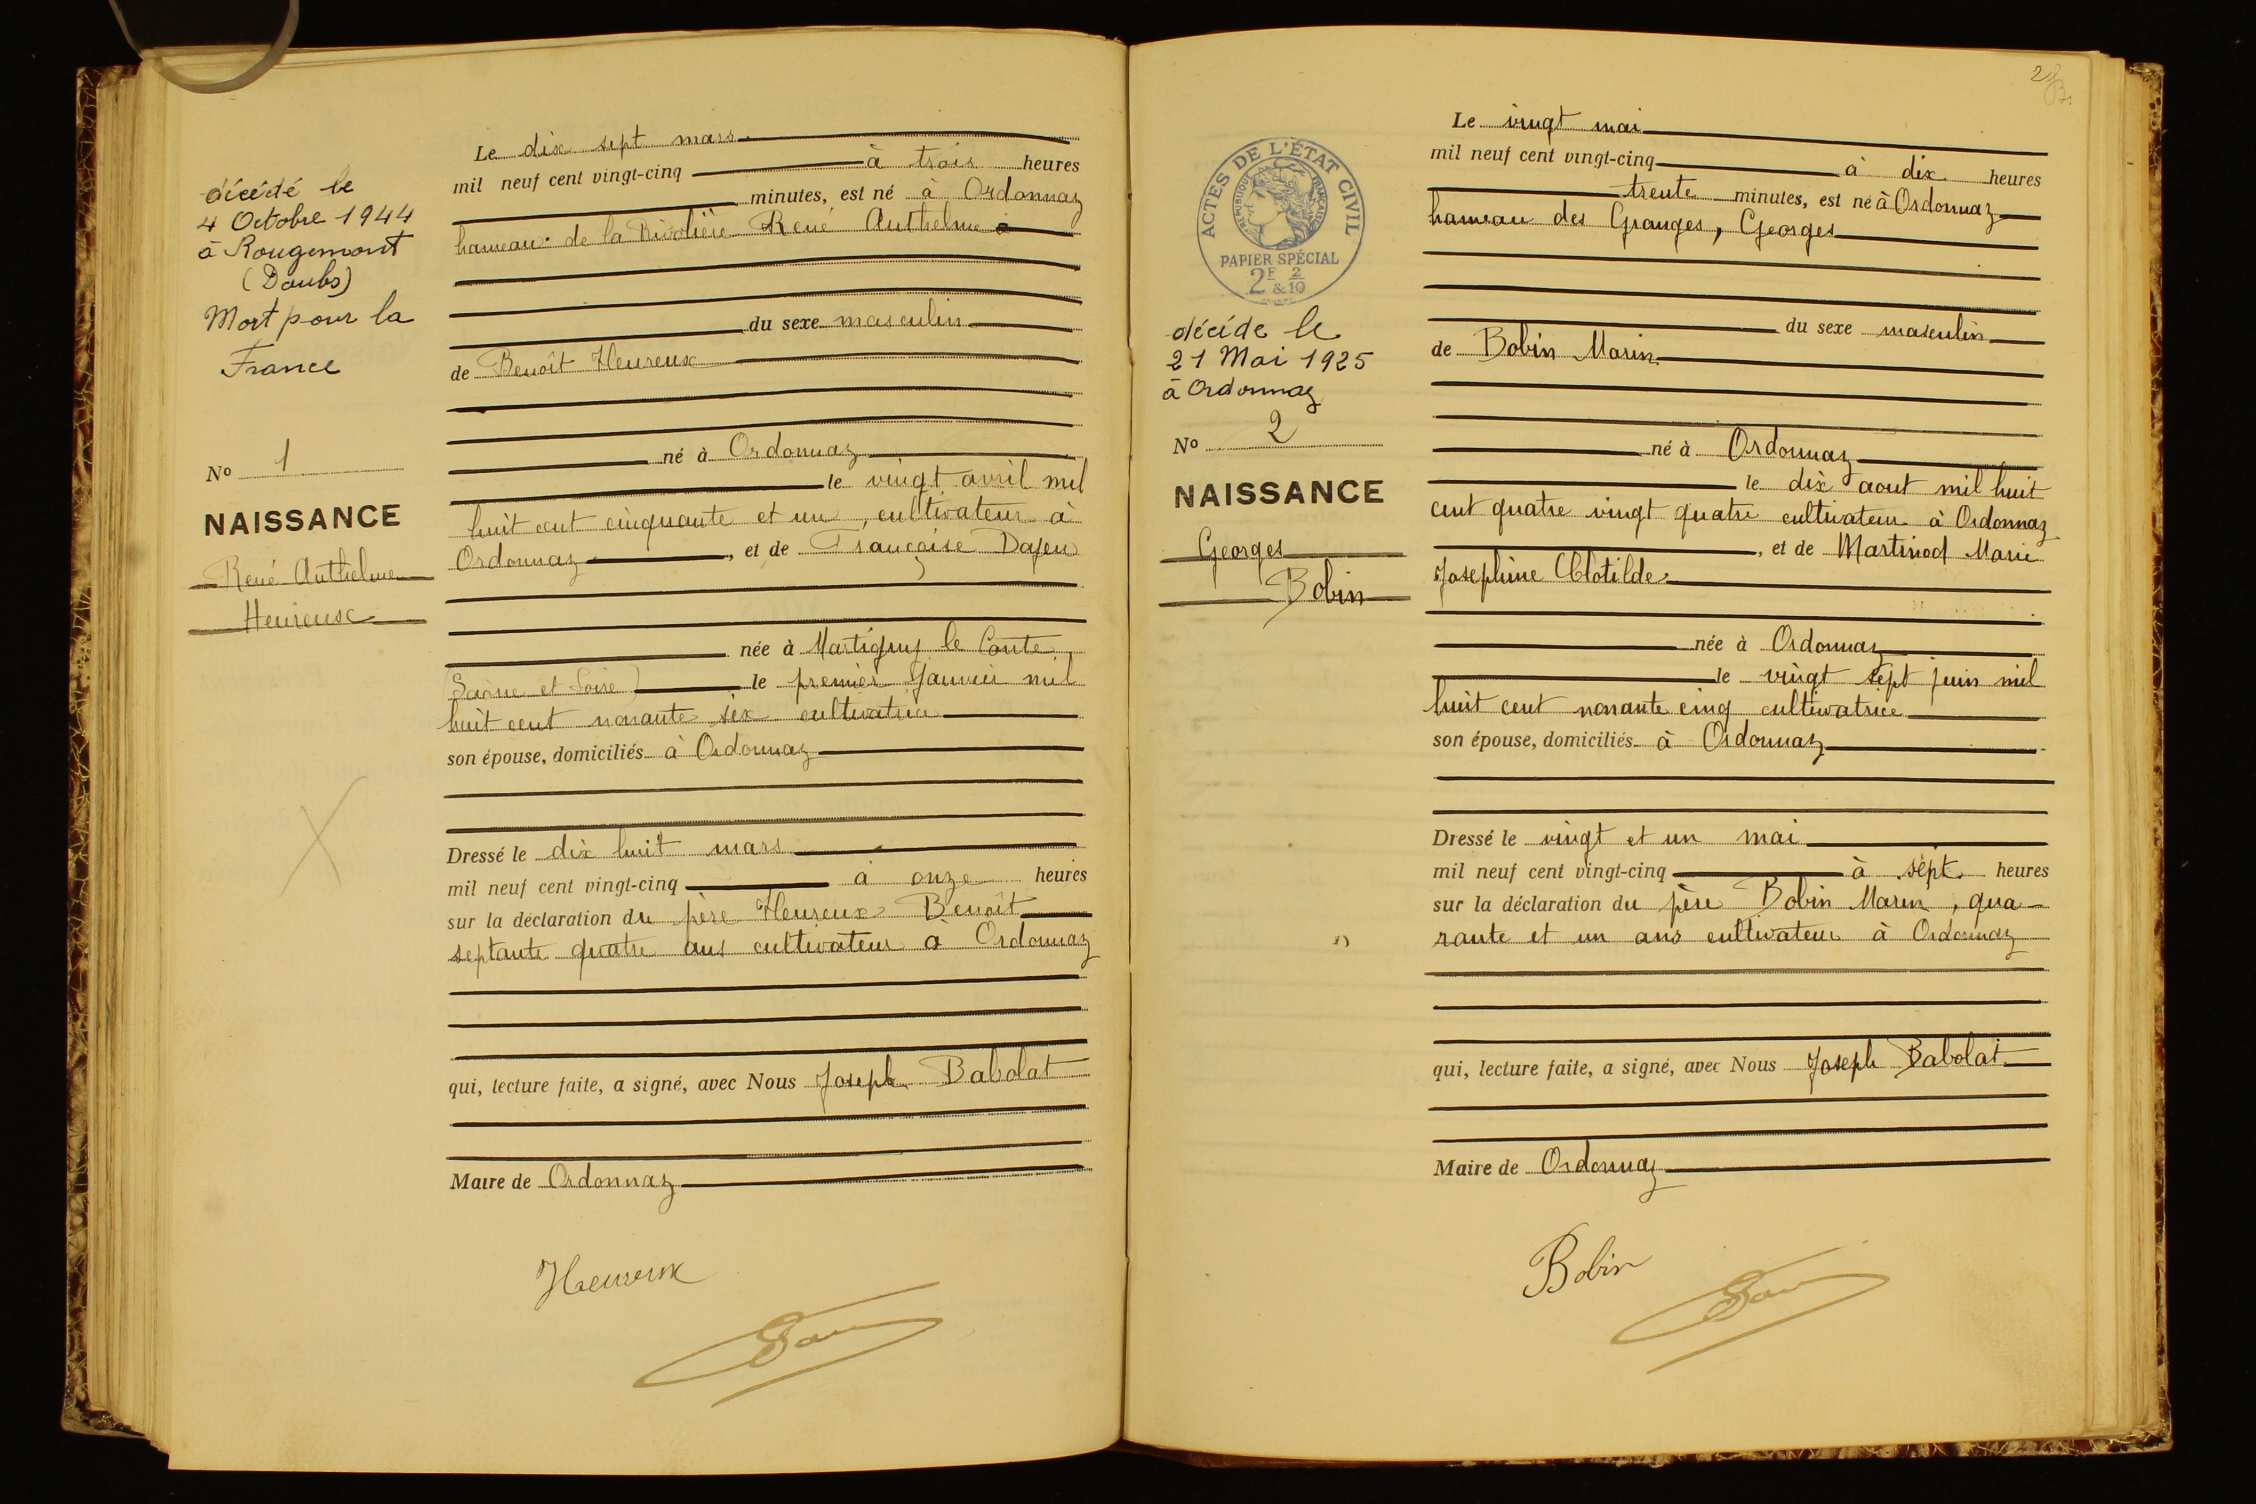 décédé le
4 Octobre 1944
à Rougemont
(Doubs)
Mort pour la
France
No 1
NAISSANCE
René Anthelme
Heureux
Le dix sept mars
mil neuf cent vingt-cinq à trois heures
minutes, est né à Ordonnaz
hameau de la René Anthelme
du sexe masculin
de Benoît Heureux
né à Ordonnaz
le vingt avril mil
huit cent cinquante et un, cultivateur à
Ordonnaz, et de Françoise
née à Martigny le Comte,
(Saône et Loire) le premier Janvier mil
huit cent nonante six cultivatrice
son épouse, domiciliés à Ordonnaz
Dressé le dix huit mars
mil neuf cent vingt-cinq à onze heures
sur la déclaration du père Heureux Benoît
septante quatre ans cultivateur à Ordonnaz
qui, lecture faite, a signé, avec Nous Joseph Babolat
Maire de Ordonnaz
Heureux
2
ACTES DE L'ÉTAT CIVIL
RÉPUBLIQUE FRANÇAISE
PAPIER SPÉCIAL
2F & 2/10
décédé le
21 Mai 1925
à Ordonnaz
No 2
NAISSANCE
Georges
Bobin
Le vingt mai
mil neuf cent vingt-cinq à dix heures
trente minutes, est né à Ordonnaz
hameau des Granges, Georges
du sexe masculin
de Bobin Marin
né à Ordonnaz
le dix aout mil huit
cent quatre vingt quatre cultivateur à Ordonnaz
, et de Martinod Marie
Joséphine Clotilde
née à Ordonnaz
le vingt sept juin mil
huit cent nonante cinq cultivatrice
son épouse, domiciliés à Ordonnaz
Dressé le vingt et un mai
mil neuf cent vingt-cinq à sept heures
sur la déclaration du père Bobin Marin, qua-
rante et un ans cultivateur à Ordonnaz
qui, lecture faite, a signé, avec Nous Joseph Babolat
Maire de Ordonnaz
Bobin